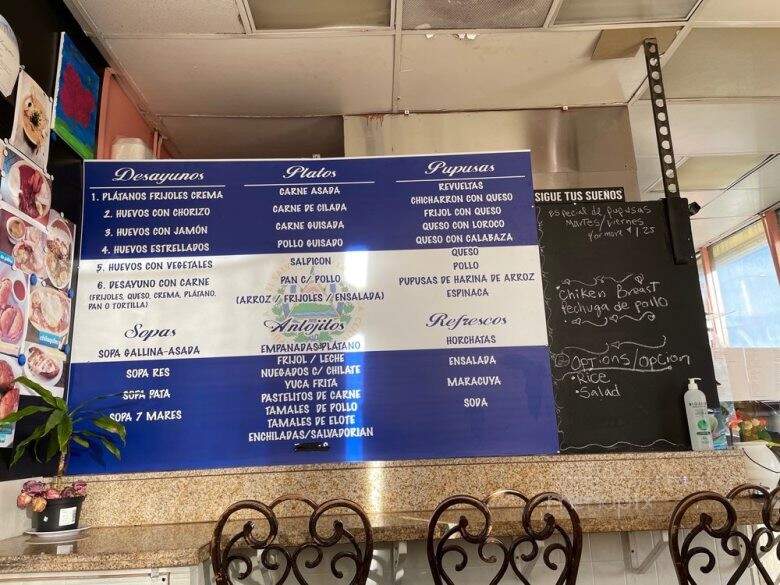 Desayunos
1. PLÁTANOS FRIJOLES CREMA
2. HUEVOS CON CHORIZO
3. HUEVOS CON JAMÓN
4. HUEVOS ESTRELLADOS
5. HUEVOS CON VEGETALES
6. DESAYUNO CON CARNE
(FRIJOLES, QUESO, CREMA, PLÁTANO,
PAN O TORTILLA)
Sopas
SOPA GALLINA-ASADA
SOPA RES
SOPA PATA
SOPA 7 MARES
Platos
CARNE ASADA
CARNE DE CILADA
CARNE GUISADA
POLLO GUISADO
SALPICON
PAN C/ POLLO
(ARROZ / FRIJOLES / ENSALADA)
Antojitos
EMPANADAS PLÁTANO
FRIJOL / LECHE
NUEGADOS C/ CHILATE
YUCA FRITA
PASTELITOS DE CARNE
TAMALES DE POLLO
TAMALES DE ELOTE
ENCHILADAS/SALVADORIAN
Pupusas
REVUELTAS
CHICHARRON CON QUESO
FRIJOL CON QUESO
QUESO CON LOROCO
QUESO CON CALABAZA
QUESO
POLLO
PUPUSAS DE HARINA DE ARROZ
ESPINACA
Refrescos
HORCHATAS
ENSALADA
MARACUYA
SODA
SIGUE TUS SUEÑOS
Especial de Pupusas
Martes/viernes
4 or more $1.25
Chiken Breast
Pechuga de pollo
@Options/opcion
•Rice
•Salad